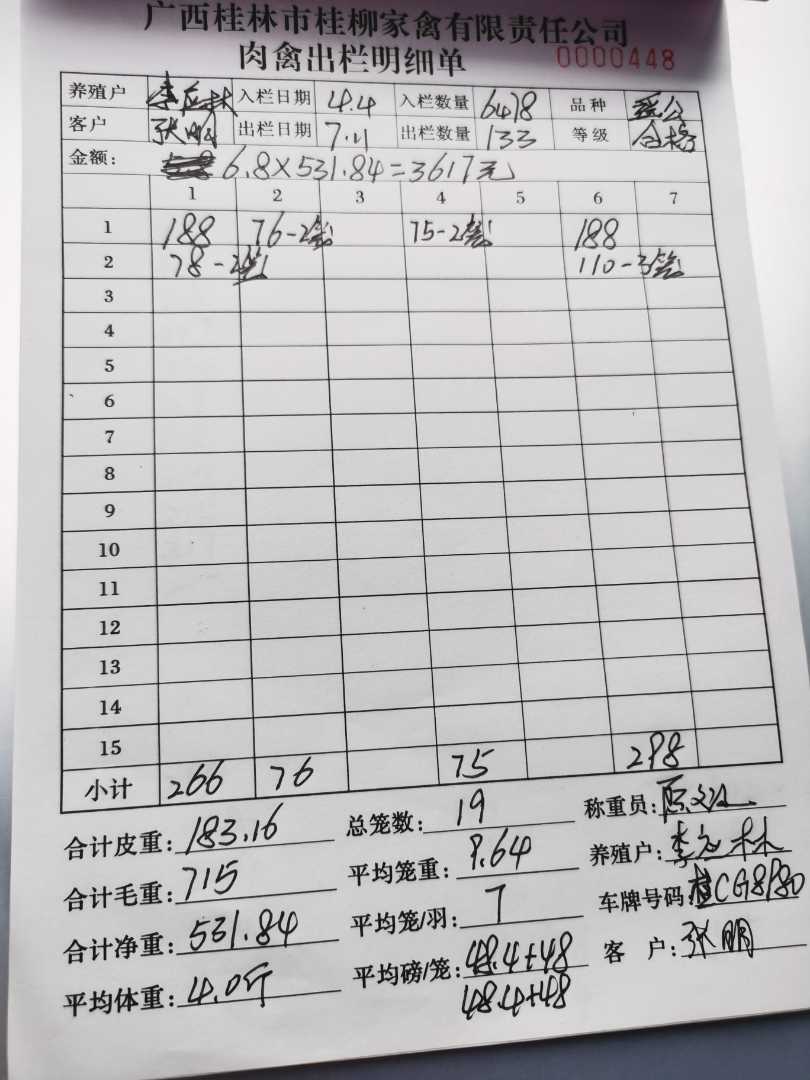 广西桂林市桂柳家禽有限责任公司
肉禽出栏明细单 0000448
养殖户 李应林 入栏日期 4.4 入栏数量 6478 品种
客户 张明 出栏日期 7.11 出栏数量 133 等级 合格
金额: 6.8×531.84=3617元
1 2 3 4 5 6 7
1 188 76-2笼 75-2笼 188
2 78-2笼 110-3笼
3
4
5
6
7
8
9
10
11
12
13
14
15
小计 266 76 75 298
合计皮重: 183.16 总笼数: 19 称重员:
合计毛重: 715 平均笼重: 9.64 养殖户: 李应林
合计净重: 531.84 平均笼/羽: 7 车牌号码: 桂CG8P80
平均体重: 4.0斤 平均磅/笼: 48.4+48 客户: 张明
48.4+48